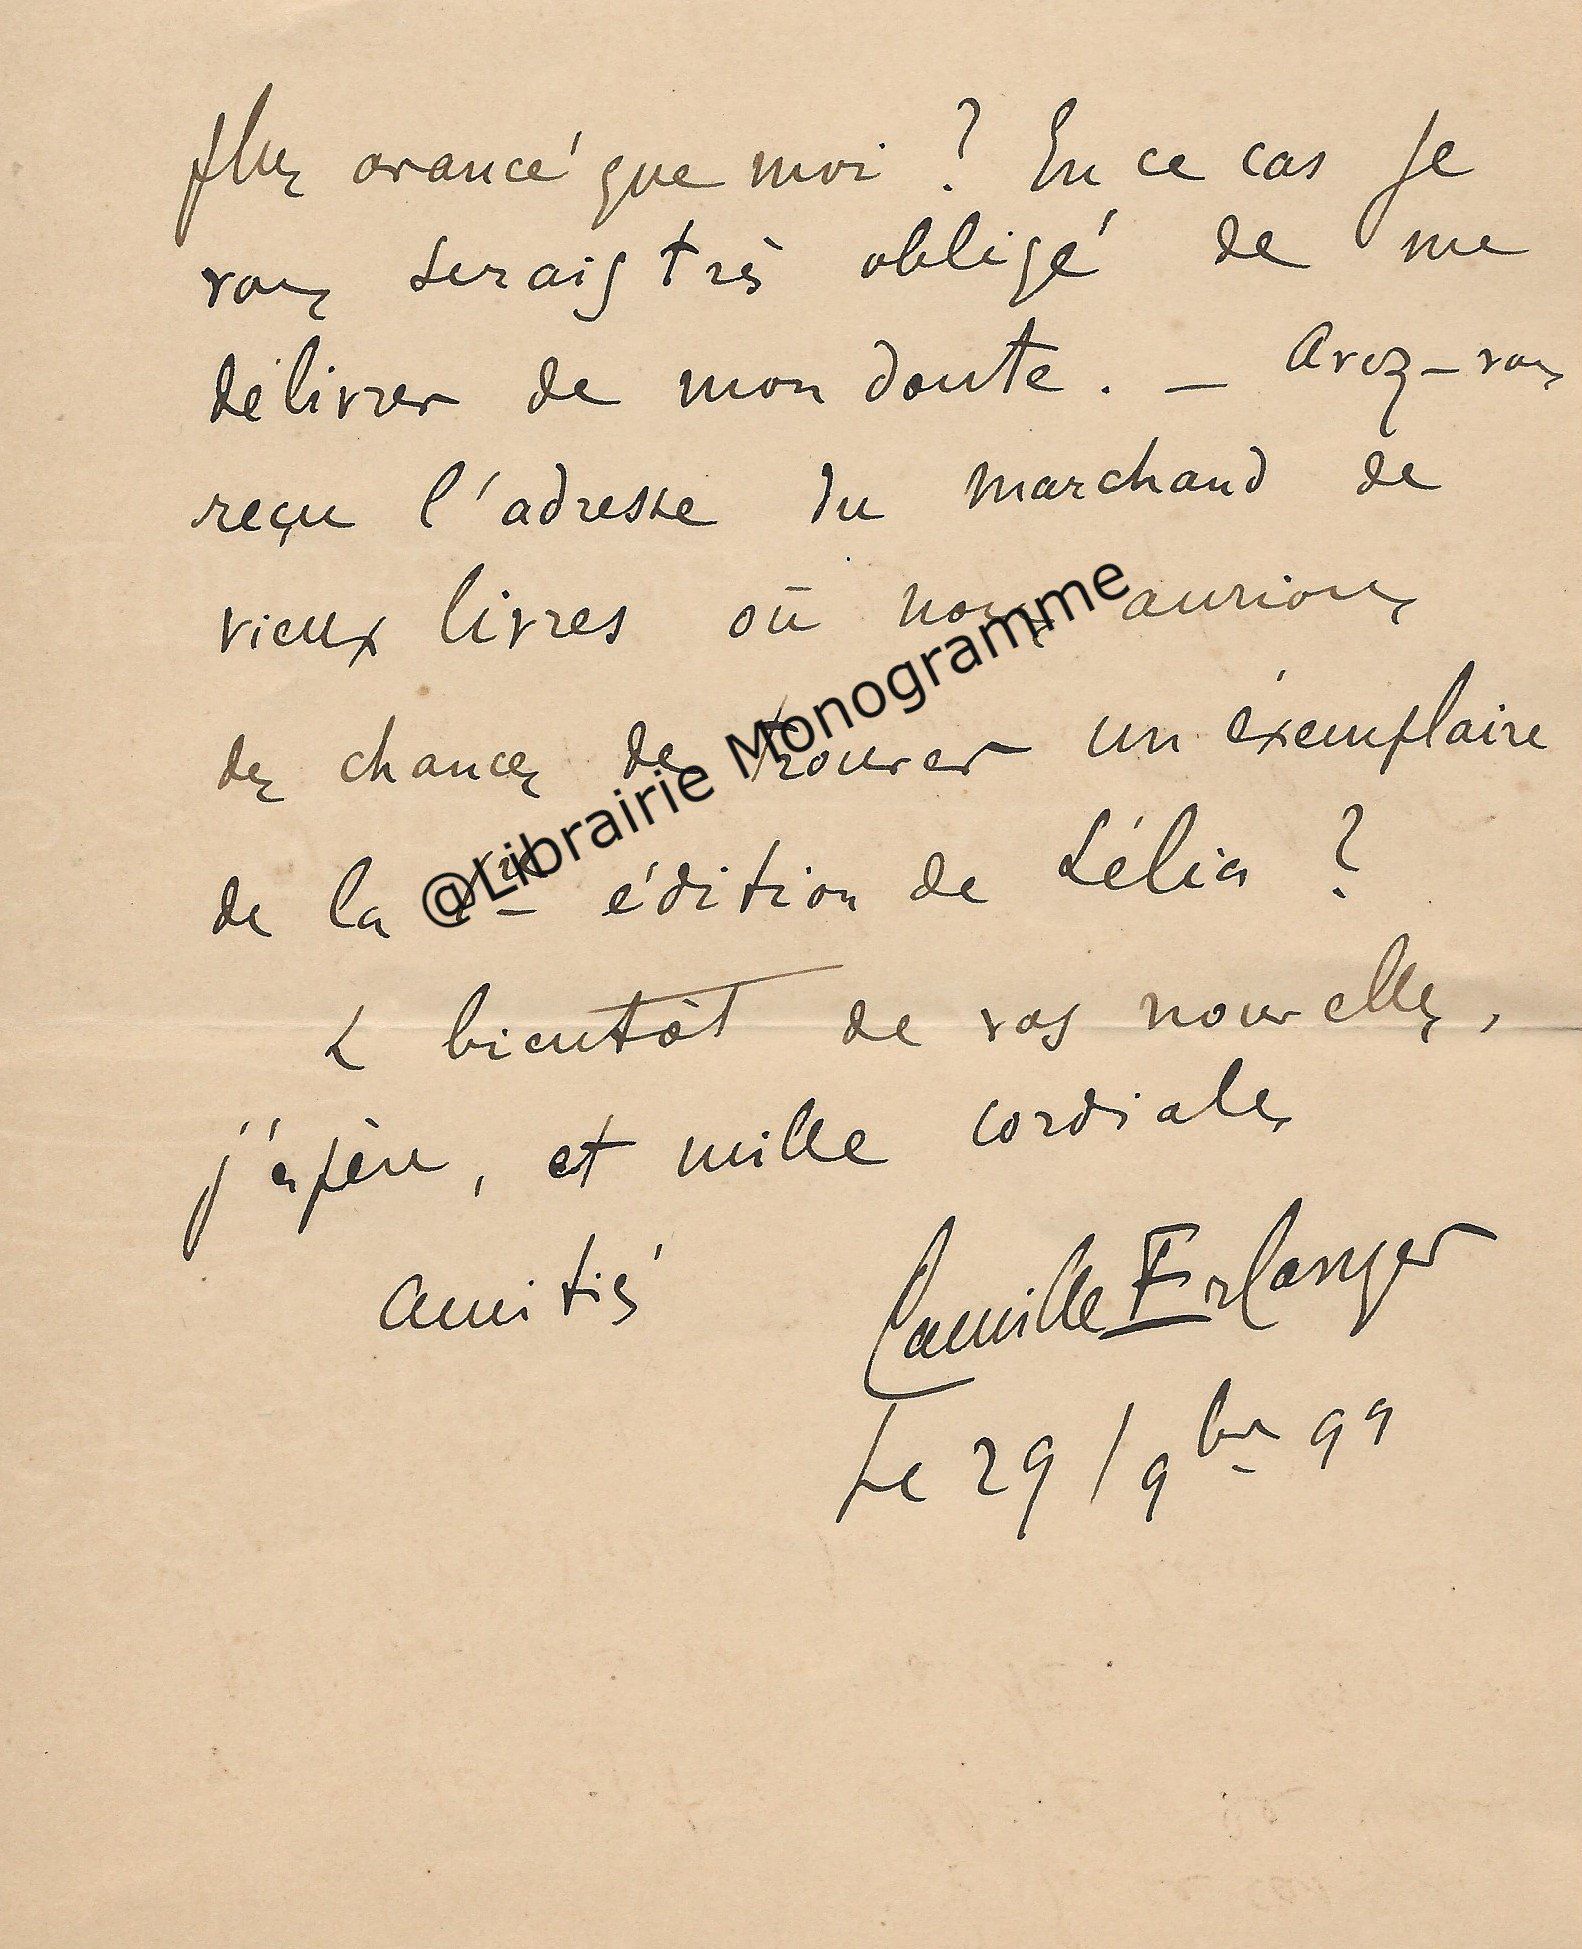 plus avancé que moi ? En ce cas je
vous serais très obligé de me
délivrer de mon doute. — Avez-vous
reçu l'adresse du marchand de
vieux livres où nous aurions
des chances de trouver un éxemplaire
de la 1re édition de Lélia ?
@Librairie Monogramme
À bientôt de vos nouvelles,
j'espère, et mille cordiales
amitiés
Camille Erlanger
Le 29 / 9bre 99